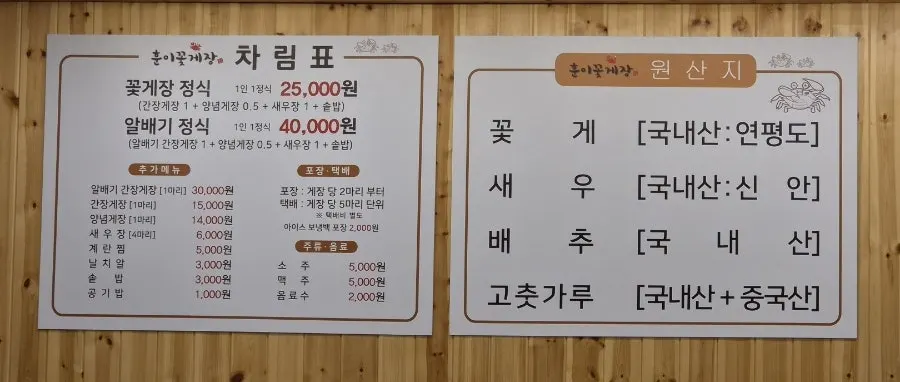 훈이꽃게장 차림표
꽃게장 정식 1인 1정식 25,000원
(간장게장 1 + 양념게장 0.5 + 새우장 1 + 솥밥)
알배기 정식 1인 1정식 40,000원
(알배기 간장게장 1 + 양념게장 0.5 + 새우장 1 + 솥밥)
추가메뉴
알배기 간장게장 [1마리] 30,000원
간장게장 [1마리] 15,000원
양념게장 [1마리] 14,000원
새우장 [4마리] 6,000원
계란찜 5,000원
날치알 3,000원
솥밥 3,000원
공기밥 1,000원
포장·택배
포장 : 게장 당 2마리 부터
택배 : 게장 당 5마리 단위
※ 택배비 별도
아이스 보냉백 포장 2,000원
주류·음료
소주 5,000원
맥주 5,000원
음료수 2,000원
훈이꽃게장 원산지
꽃게 [국내산 : 연평도]
새우 [국내산 : 신안]
배추 [국내산]
고춧가루 [국내산 + 중국산]